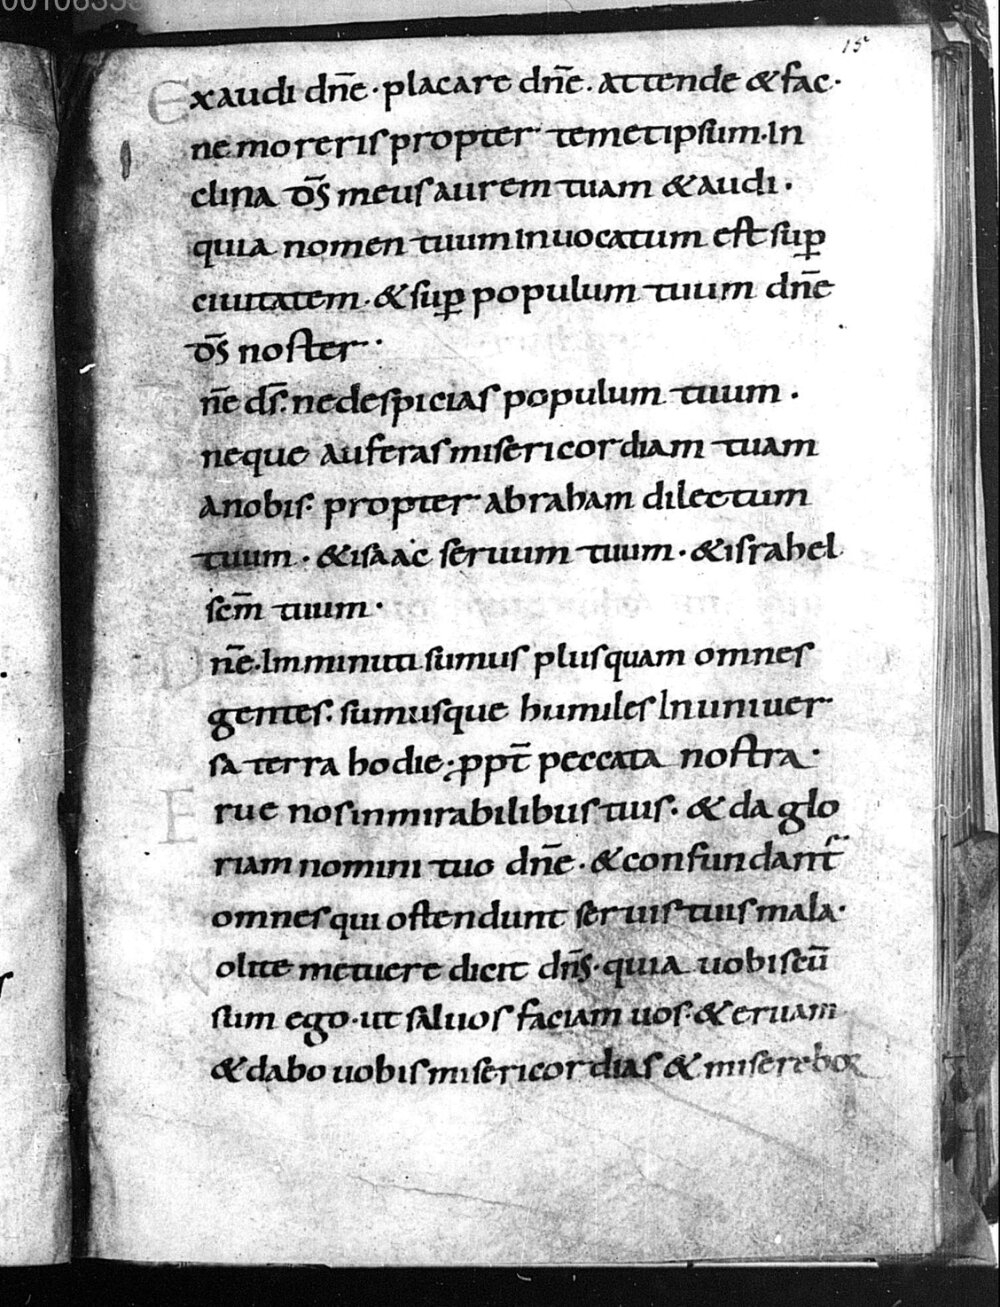 15
Exaudi dn̄e · placare dn̄e . attende & fac ·
ne moreris propter temetipsum · In
clina d̄s meus aurem tuam & audi ·
quia nomen tuum inuocatum est sup̱
ciuitatem · & sup̱ populum tuum dn̄e
d̄s noster ·
D n̄e d̄s · ne despicias populum tuum ·
neque auferas misericordiam tuam
a nobis · propter abraham dilectum
tuum · & isaac seruum tuum · & israhel
sc̄m tuum ·
D n̄e · Imminuti sumus plusquam omnes
gentes · sumusque humiles In uniuer
sa terra hodie · ppt̄ peccata nostra ·
E rue nos in mirabilibus tuis · & da glo
riam nomini tuo dn̄e · & confundant̄
omnes qui ostendunt seruis tuis mala ·
N olite metuere dicit dn̄s · quia uobiscū
sum ego · ut saluos faciam uos · & eruam
& dabo uobis misericordias & miserebor